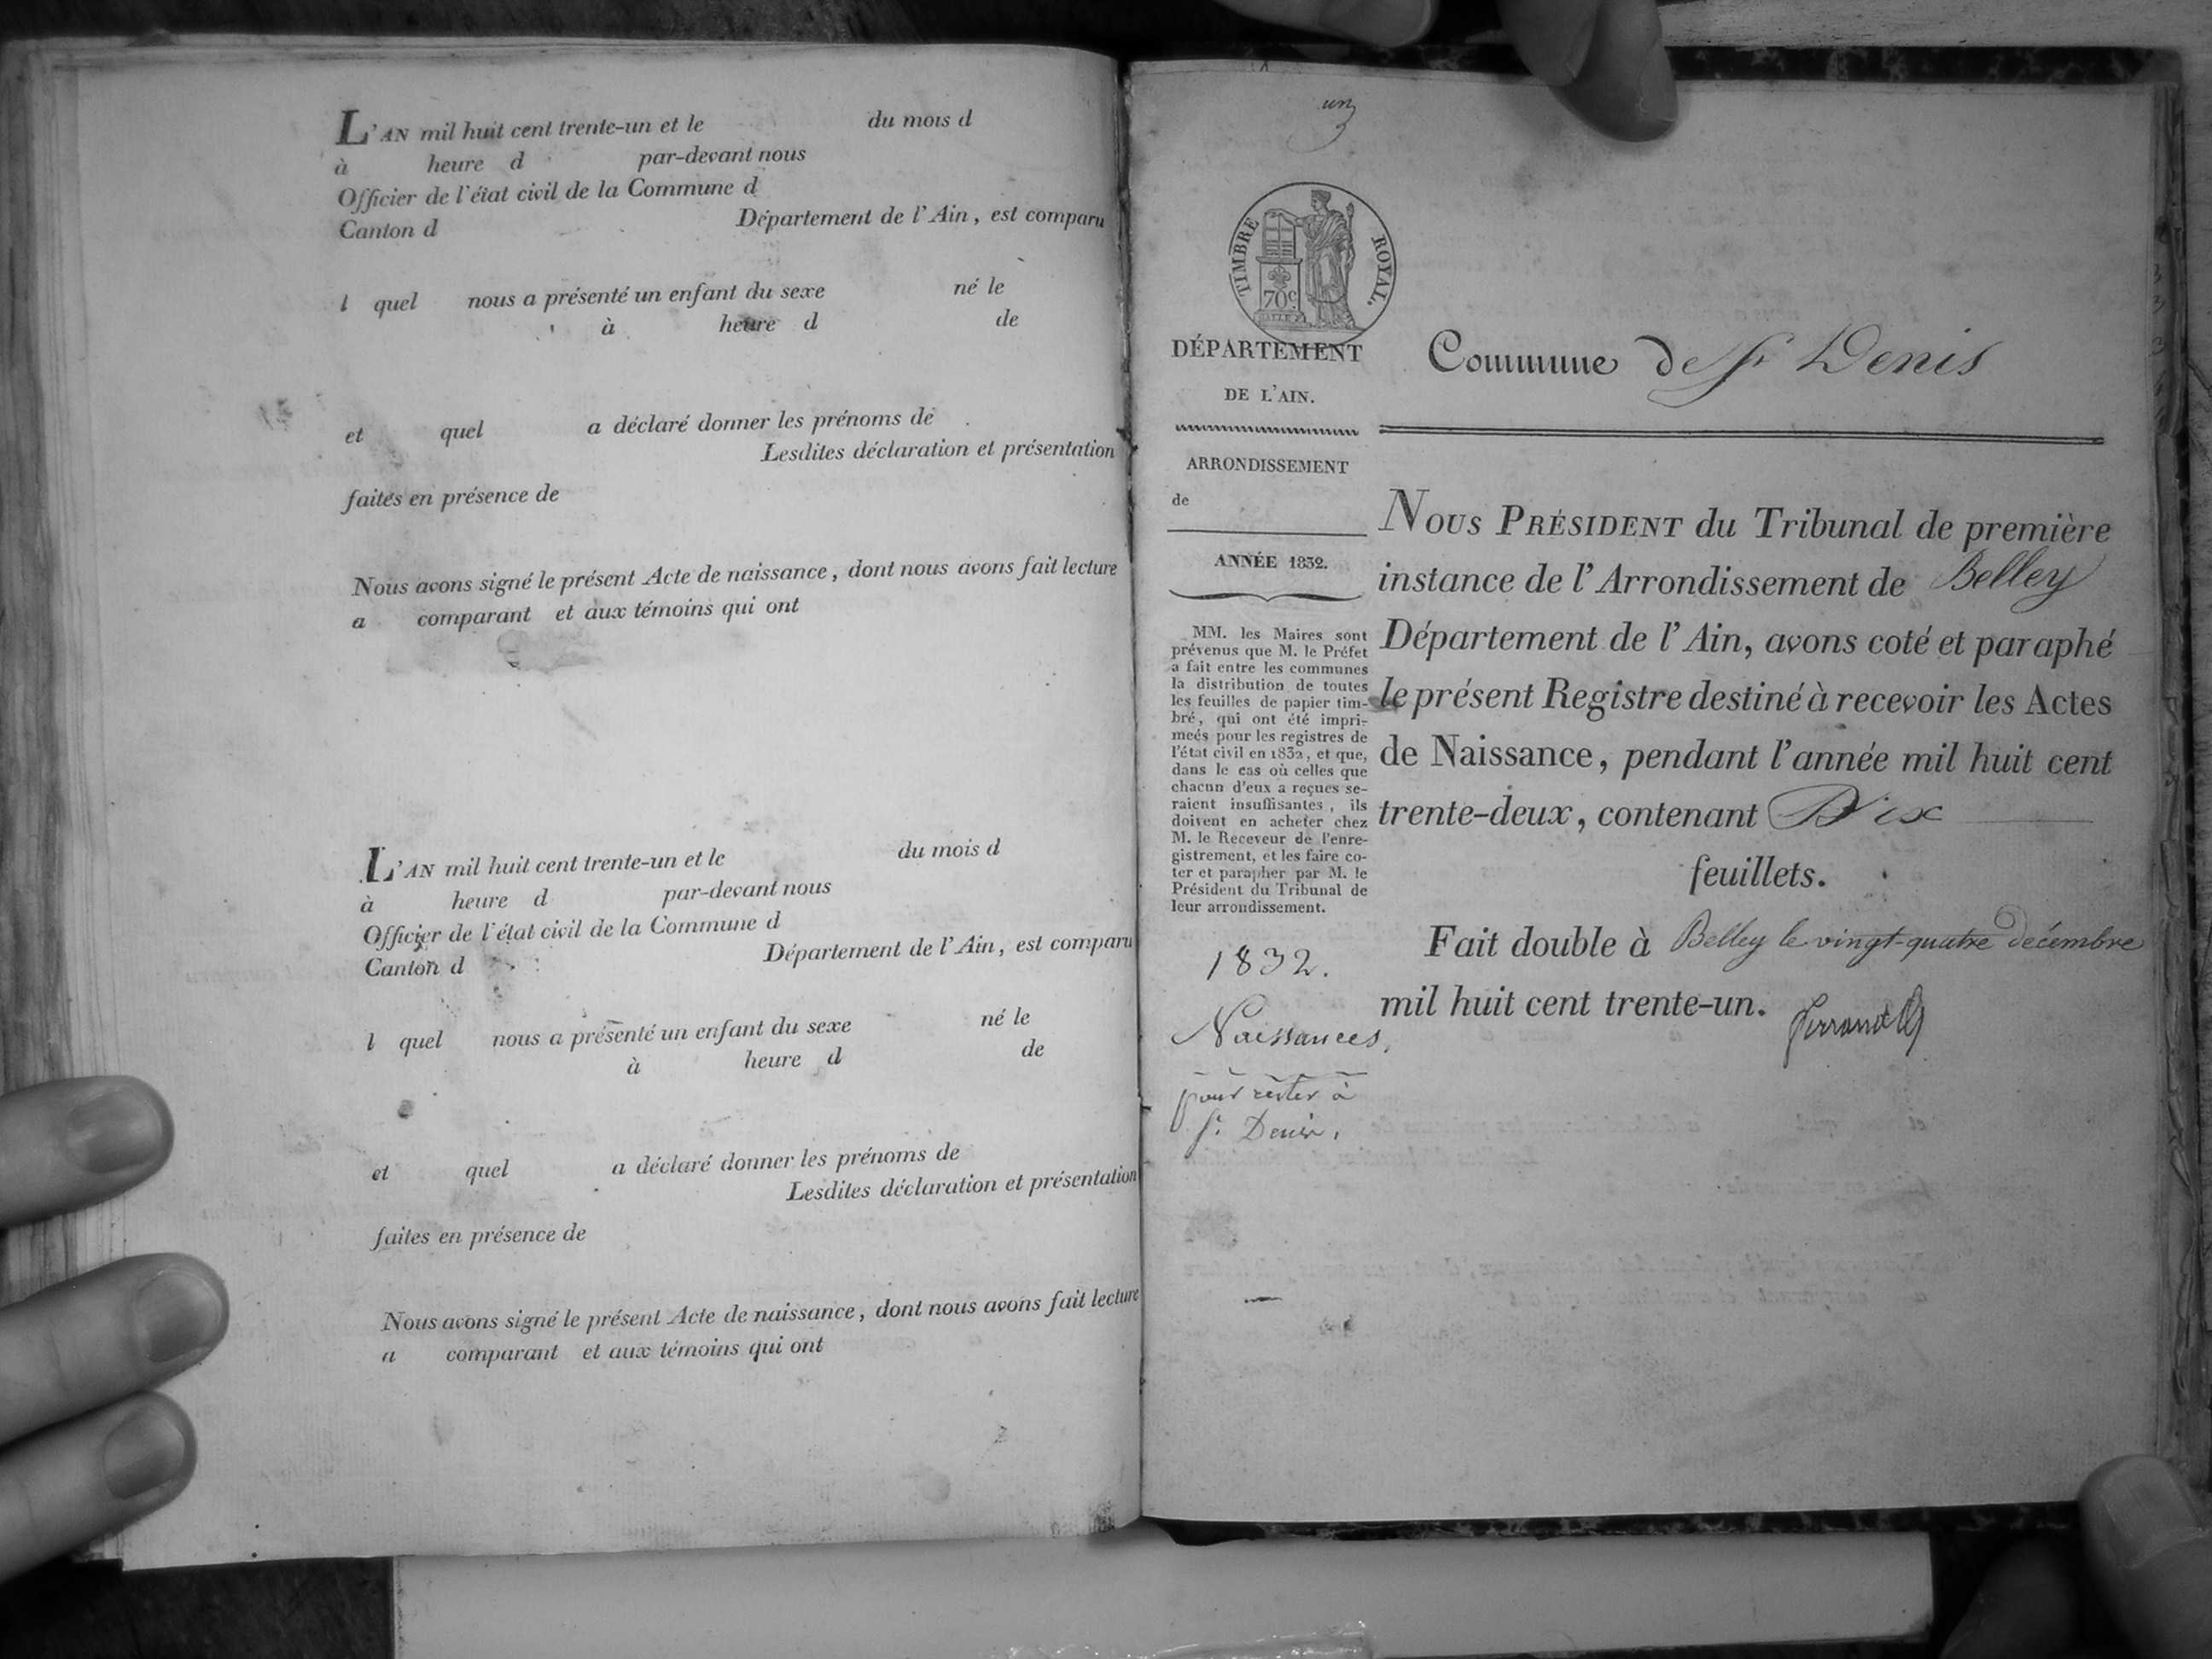 L'AN mil huit cent trente-un et le du mois d
à heure d par-devant nous
Officier de l'état civil de la Commune d
Canton d Département de l'Ain, est comparu
l quel nous a présenté un enfant du sexe né le
à heure d de
et quel a déclaré donner les prénoms de
Lesdites déclaration et présentation
faites en présence de
Nous avons signé le présent Acte de naissance, dont nous avons fait lecture
a comparant et aux témoins qui ont
L'AN mil huit cent trente-un et le du mois d
à heure d par-devant nous
Officier de l'état civil de la Commune d
Canton d Département de l'Ain, est comparu
l quel nous a présenté un enfant du sexe né le
à heure d de
et quel a déclaré donner les prénoms de
Lesdites déclaration et présentation
faites en présence de
Nous avons signé le présent Acte de naissance, dont nous avons fait lecture
a comparant et aux témoins qui ont
un
TIMBRE ROYAL.
70c
DÉPARTEMENT
DE L'AIN.
ARRONDISSEMENT
de
ANNÉE 1832.
MM. les Maires sont
prévenus que M. le Préfet
a fait entre les communes
la distribution de toutes
les feuilles de papier tim-
bré, qui ont été impri-
meés pour les registres de
l'état civil en 1832, et que,
dans le cas où celles que
chacun d'eux a reçues se-
raient insuffisantes, ils
doivent en acheter chez
M. le Receveur de l'enre-
gistrement, et les faire co-
ter et parapher par M. le
Président du Tribunal de
leur arrondissement.
1832.
Naissances,
pour rester à
St. Denis.
Commune de St Denis
NOUS PRÉSIDENT du Tribunal de première
instance de l'Arrondissement de Belley
Département de l'Ain, avons coté et paraphé
le présent Registre destiné à recevoir les Actes
de Naissance, pendant l'année mil huit cent
trente-deux, contenant Dix
feuillets.
Fait double à Belley le vingt-quatre décembre
mil huit cent trente-un.